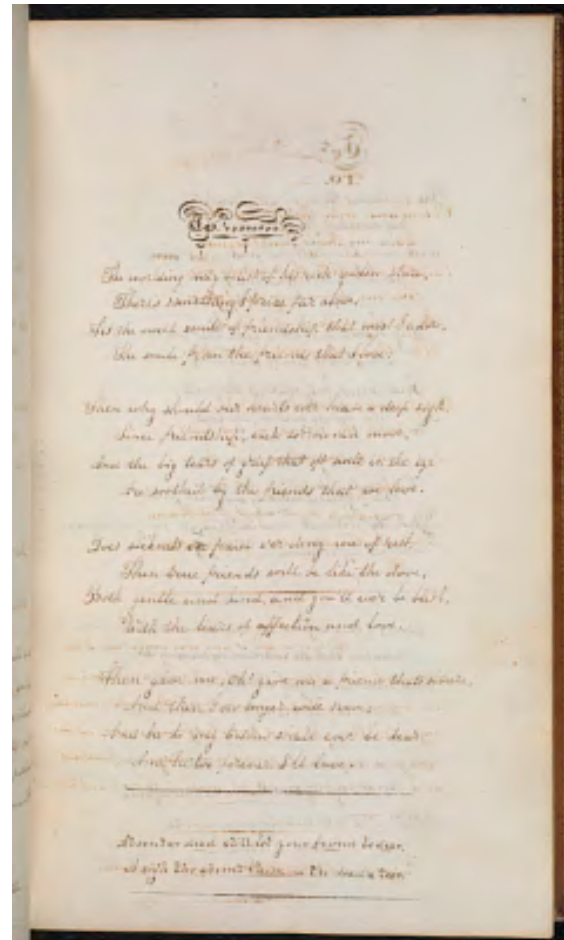 The worldling may boast of his
There's something I prize far above,
'Tis the sweet smile of friendship that most I adore,
The smile from the friends that I love.
Then why should our hearts ever heave a deep sigh,
Since friendship, such sorrow can move,
And the big tears of grief that oft melt in the eye
Are soothed by the friends that we love.
Does sickness or pain e'er deny you of rest,
Then true friends will be like the dove,
Both gentle and kind, and you'll ever be blest,
With the tears of affection and love.
Then give me, Oh! give me a friend that's sincere,
And then I no longer will
And he to my bosom shall ever be dear
And he too forever I'll love.
Absent or dead still let your friend be dear,
A sigh the absent claims the dead a tear.